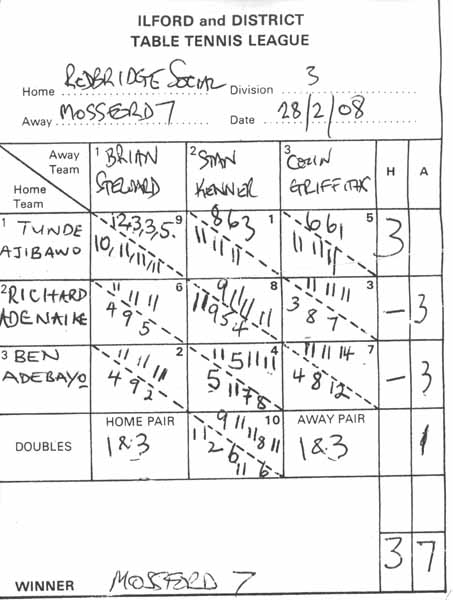 ILFORD and DISTRICT
TABLE TENNIS LEAGUE
Home REDBRIDGE SOCIAL Division 3
Away MOSSFORD 7 Date 28/2/08
Away Team
Home Team
1 BRIAN STEWARD
2 STAN KENNER
3 COLIN
H A
1 TUNDE AJIBAWO
9 12,3,3,5.
10, 11, 11, 11, 11
1 8 6 3
11 11 11
5 6 6 1
11 11 11
3
2 RICHARD ADENAIKE
6 11 11 11
4 9 5
8 9 11 4 11
11 9 5 4
3 11 11 11
3 8 7
– 3
3 BEN ADEBAYO
2 11 11 11
4 9 2
4 11 5 11 11
5 11 7 8
7 11 11 14
4 8 12
– 3
DOUBLES
HOME PAIR
1&3
10 9 11 11 8 11
11 2 6 11 6
AWAY PAIR
1&3
1
3 7
WINNER MOSSFORD 7